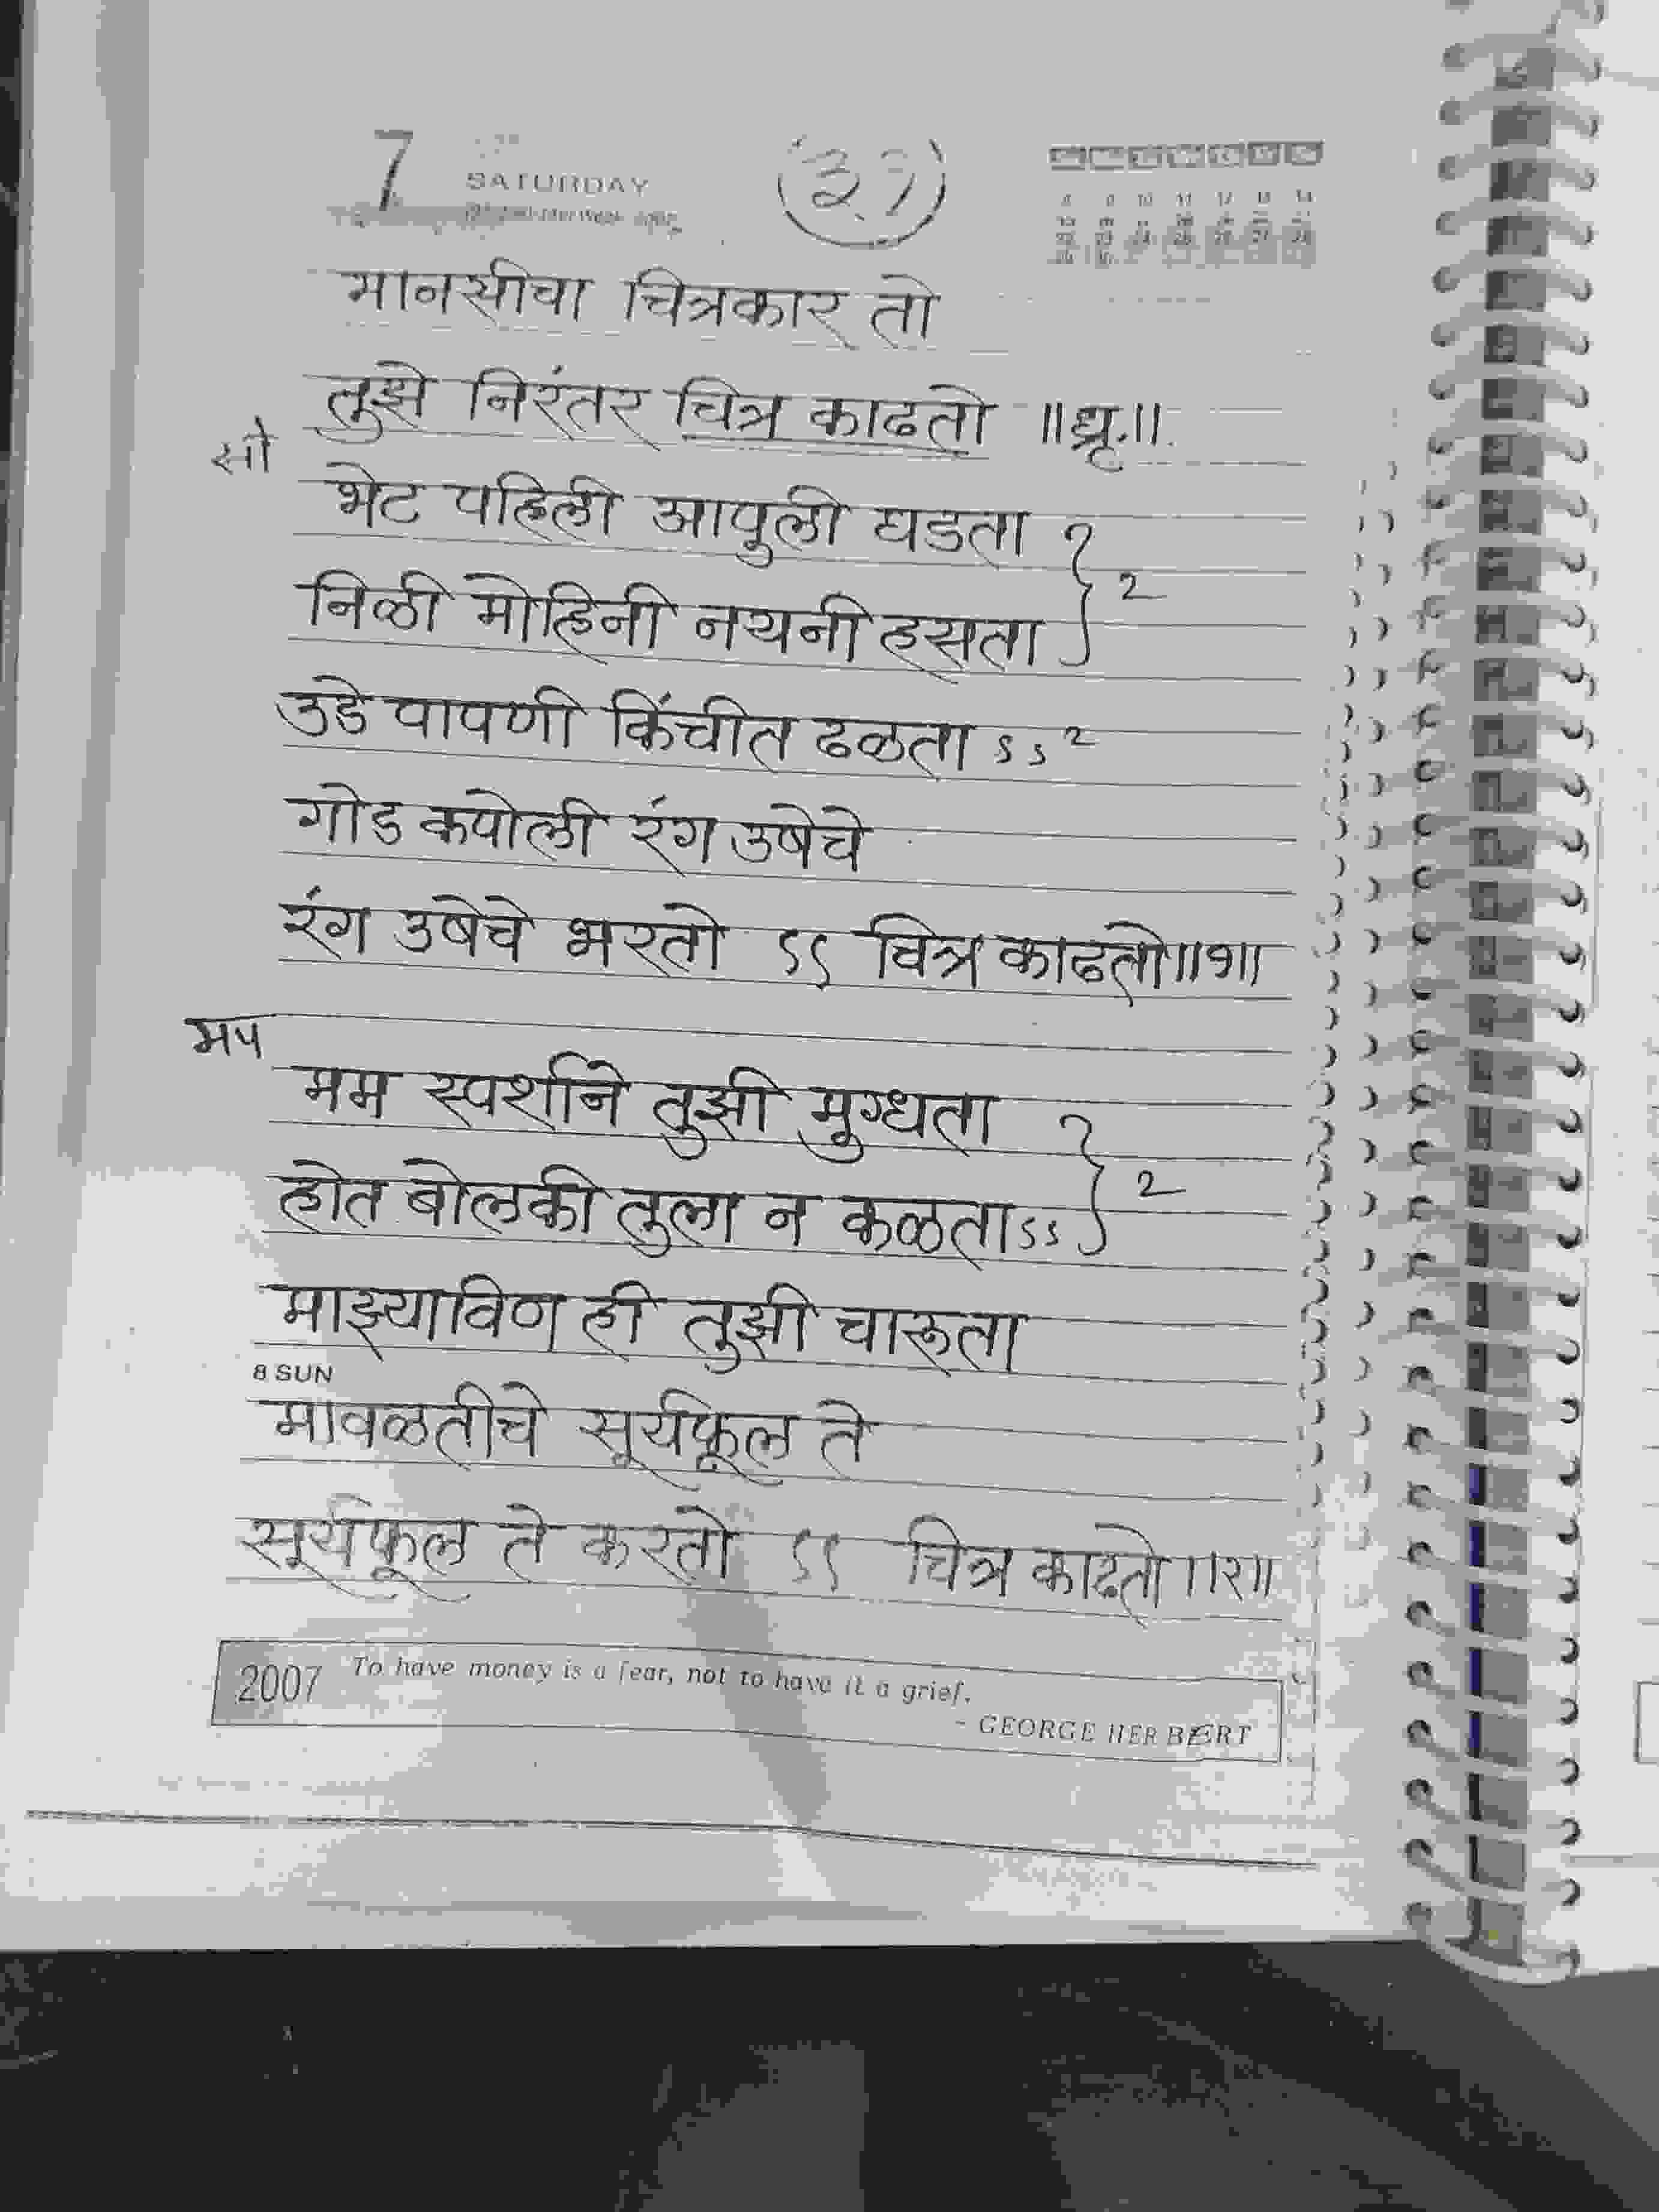 7
SATURDAY
8 9 10 11 12 13 14
मानसीचा चित्रकार तो
तुझे निरंतर चित्र काढतो ॥ध्रृ.॥
सो
भेट पहिली आपुली घडता
निळी मोहिनी नयनी हसता } 2
उडे पापणी किंचीत ढळता ऽऽ 2
गोड कपोली रंग उषेचे
रंग उषेचे भरतो ऽऽ चित्र काढतो॥१॥
मप
मम स्पर्शाने तुझी मुग्धता
होत बोलकी तुला न कळताऽऽ } 2
माझ्याविण ही तुझी चारूता
8 SUN
मावळतीचे सूर्यफूल ते
सूर्यफूल ते करतो ऽऽ चित्र काढतो॥२॥
2007 To have money is a fear, not to have it a grief.
- GEORGE HERBERT